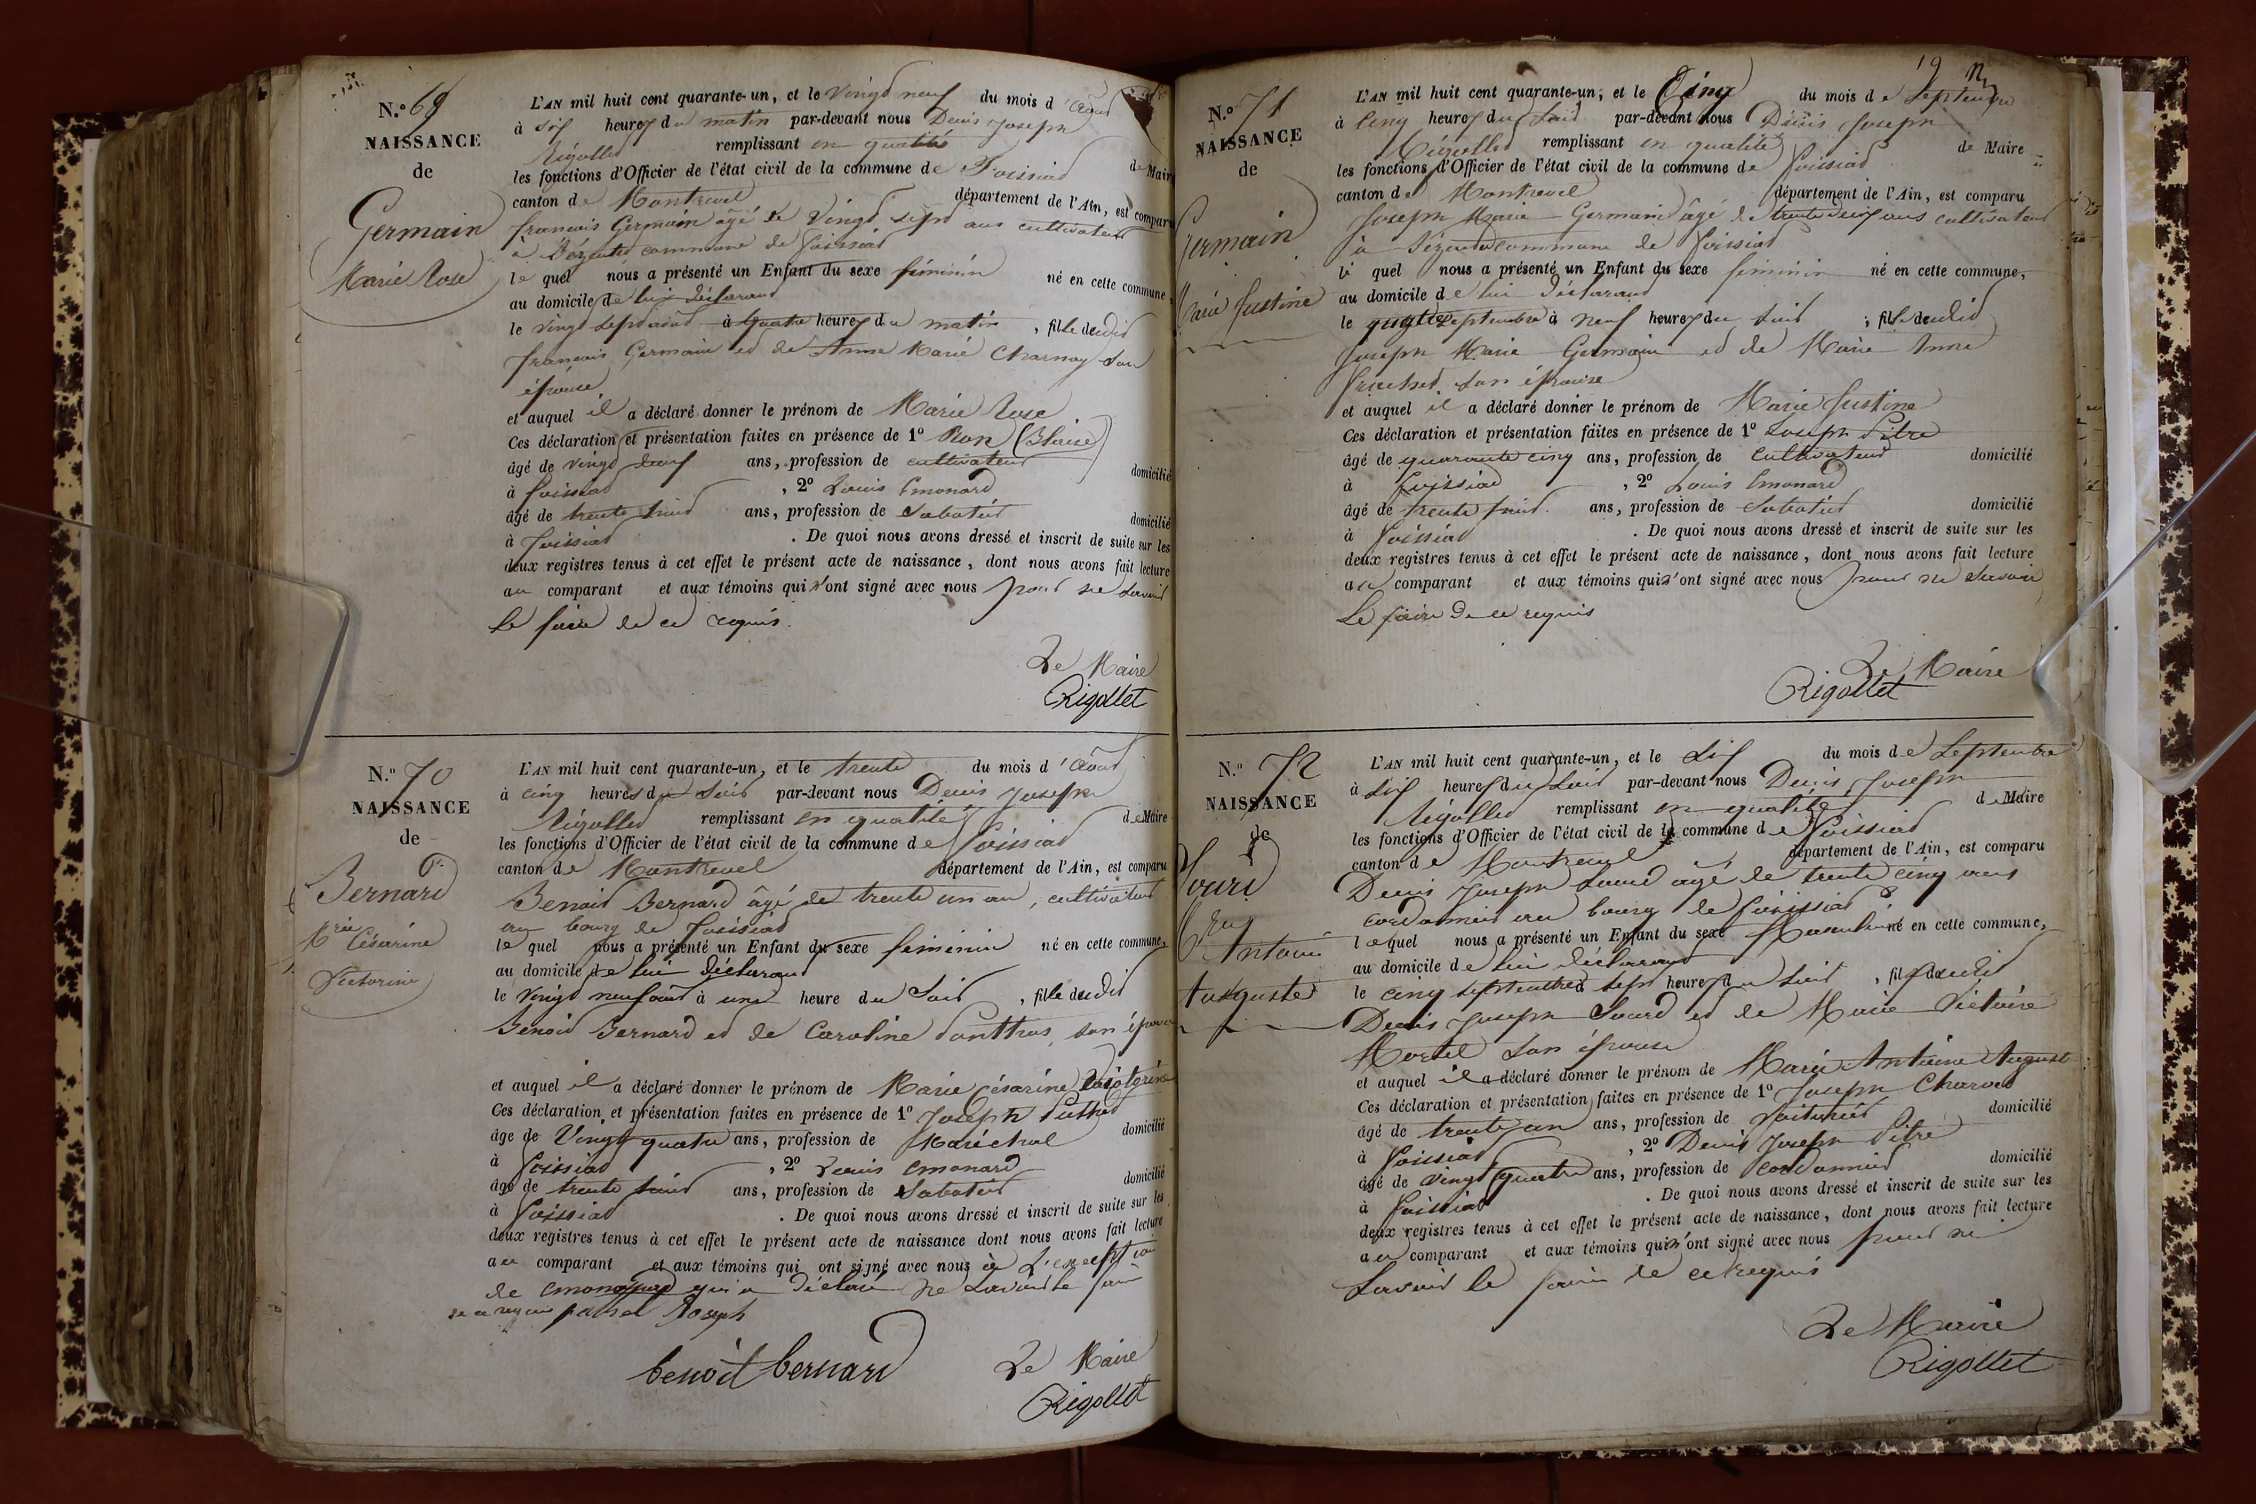 N.º 69
NAISSANCE
de
Germain
Marie Rose
L'AN mil huit cent quarante-un, et le vingt neuf du mois d'août
à six heures du matin par-devant nous Denis Joseph
Rigollet remplissant en qualité de Maire
les fonctions d'Officier de l'état civil de la commune de Foissiat
canton de Montrevel département de l'Ain, est comparu
françois Germain âgé de vingt sept ans cultivateur
à commune de foissiat
le quel nous a présenté un Enfant du sexe féminin né en cette commune,
au domicile de lui déclarant
le vingt sept août à quatre heures du matin, fille dudit
françois Germain et de Anne Marie Charnay son
épouse
et auquel il a déclaré donner le prénom de Marie Rose
Ces déclaration et présentation faites en présence de 1º Ron (Blaise)
âgé de vingt neuf ans, profession de cultivateur domicilié
à foissiat, 2º Louis Emonard
âgé de trente huit ans, profession de Sabotier domicilié
à foissiat. De quoi nous avons dressé et inscrit de suite sur les
deux registres tenus à cet effet le présent acte de naissance, dont nous avons fait lecture
au comparant et aux témoins qui n'ont signé avec nous pour ne savoir
le faire de ce requis.
Le Maire
Rigollet
N.º 70
NAISSANCE
de
Bernard
Mrie Césarine
Victorine
L'AN mil huit cent quarante-un, et le trente du mois d'août
à cinq heures du soir par-devant nous Denis Joseph
Rigollet remplissant en qualité de Maire
les fonctions d'Officier de l'état civil de la commune de foissiat
canton de Montrevel département de l'Ain, est comparu
Benoit Bernard âgé de trente un an, cultivateur
au bourg de foissiat
le quel nous a présenté un Enfant du sexe féminin né en cette commune,
au domicile de lui déclarant
le vingt neuf août à une heure du soir, fille dudit
Benoit Bernard et de Caroline son épouse
et auquel il a déclaré donner le prénom de Marie Césarine
Ces déclaration et présentation faites en présence de 1º Joseph
âgé de vingt quatre ans, profession de Maréchal domicilié
à foissiat, 2º Louis Emonard
âgé de trente huit ans, profession de Sabotier domicilié
à foissiat. De quoi nous avons dressé et inscrit de suite sur les
deux registres tenus à cet effet le présent acte de naissance dont nous avons fait lecture
au comparant et aux témoins qui ont signé avec nous à L'exception
de Emonard qui a déclaré ne savoir le faire
de ce requis Joseph
benoît bernard
Le Maire
Rigollet
19
N.º 71
NAISSANCE
de
Germain
Marie Justine
L'AN mil huit cent quarante-un, et le Cinq du mois de Septembre
à cinq heures du soir par-devant nous Denis Joseph
Rigollet remplissant en qualité de Maire
les fonctions d'Officier de l'état civil de la commune de foissiat
canton de Montrevel département de l'Ain, est comparu
Joseph Marie Germain âgé de trente deux ans cultivateur
à commune de foissiat
le quel nous a présenté un Enfant du sexe féminin né en cette commune,
au domicile de lui déclarant
le quatre septembre à neuf heures du soir, fille dudit
Joseph Marie Germain et de Marie Anne
son épouse
et auquel il a déclaré donner le prénom de Marie Justine
Ces déclaration et présentation faites en présence de 1º Joseph Pitre
âgé de quarante cinq ans, profession de Cultivateur domicilié
à foissiat, 2º Louis Emonard
âgé de trente huit ans, profession de Sabotier domicilié
à foissiat. De quoi nous avons dressé et inscrit de suite sur les
deux registres tenus à cet effet le présent acte de naissance, dont nous avons fait lecture
au comparant et aux témoins qui n'ont signé avec nous pour ne savoir
Le faire de ce requis
Le Maire
Rigollet
N.º 72
NAISSANCE
de
Mrie
Antoine
Auguste
L'AN mil huit cent quarante-un, et le six du mois de Septembre
à six heures du soir par-devant nous Denis Joseph
Rigollet remplissant en qualité de Maire
les fonctions d'Officier de l'état civil de la commune de foissiat
canton de Montrevel département de l'Ain, est comparu
Denis Joseph âgé de trente cinq ans
cordonnier au bourg de foissiat
lequel nous a présenté un Enfant du sexe Masculin né en cette commune,
au domicile de lui déclarant
le cinq septembre à sept heures du soir, fils dudit
Denis Joseph et de Marie Victoire
Mortel son épouse
et auquel il a déclaré donner le prénom de Marie Antoine Auguste
Ces déclaration et présentation faites en présence de 1º Joseph
âgé de trente un ans, profession de voiturier domicilié
à foissiat, 2º Denis Joseph Pitre
âgé de vingt quatre ans, profession de cordonnier domicilié
à foissiat. De quoi nous avons dressé et inscrit de suite sur les
deux registres tenus à cet effet le présent acte de naissance, dont nous avons fait lecture
au comparant et aux témoins qui n'ont signé avec nous pour ne
savoir le faire de ce requis
Le Maire
Rigollet